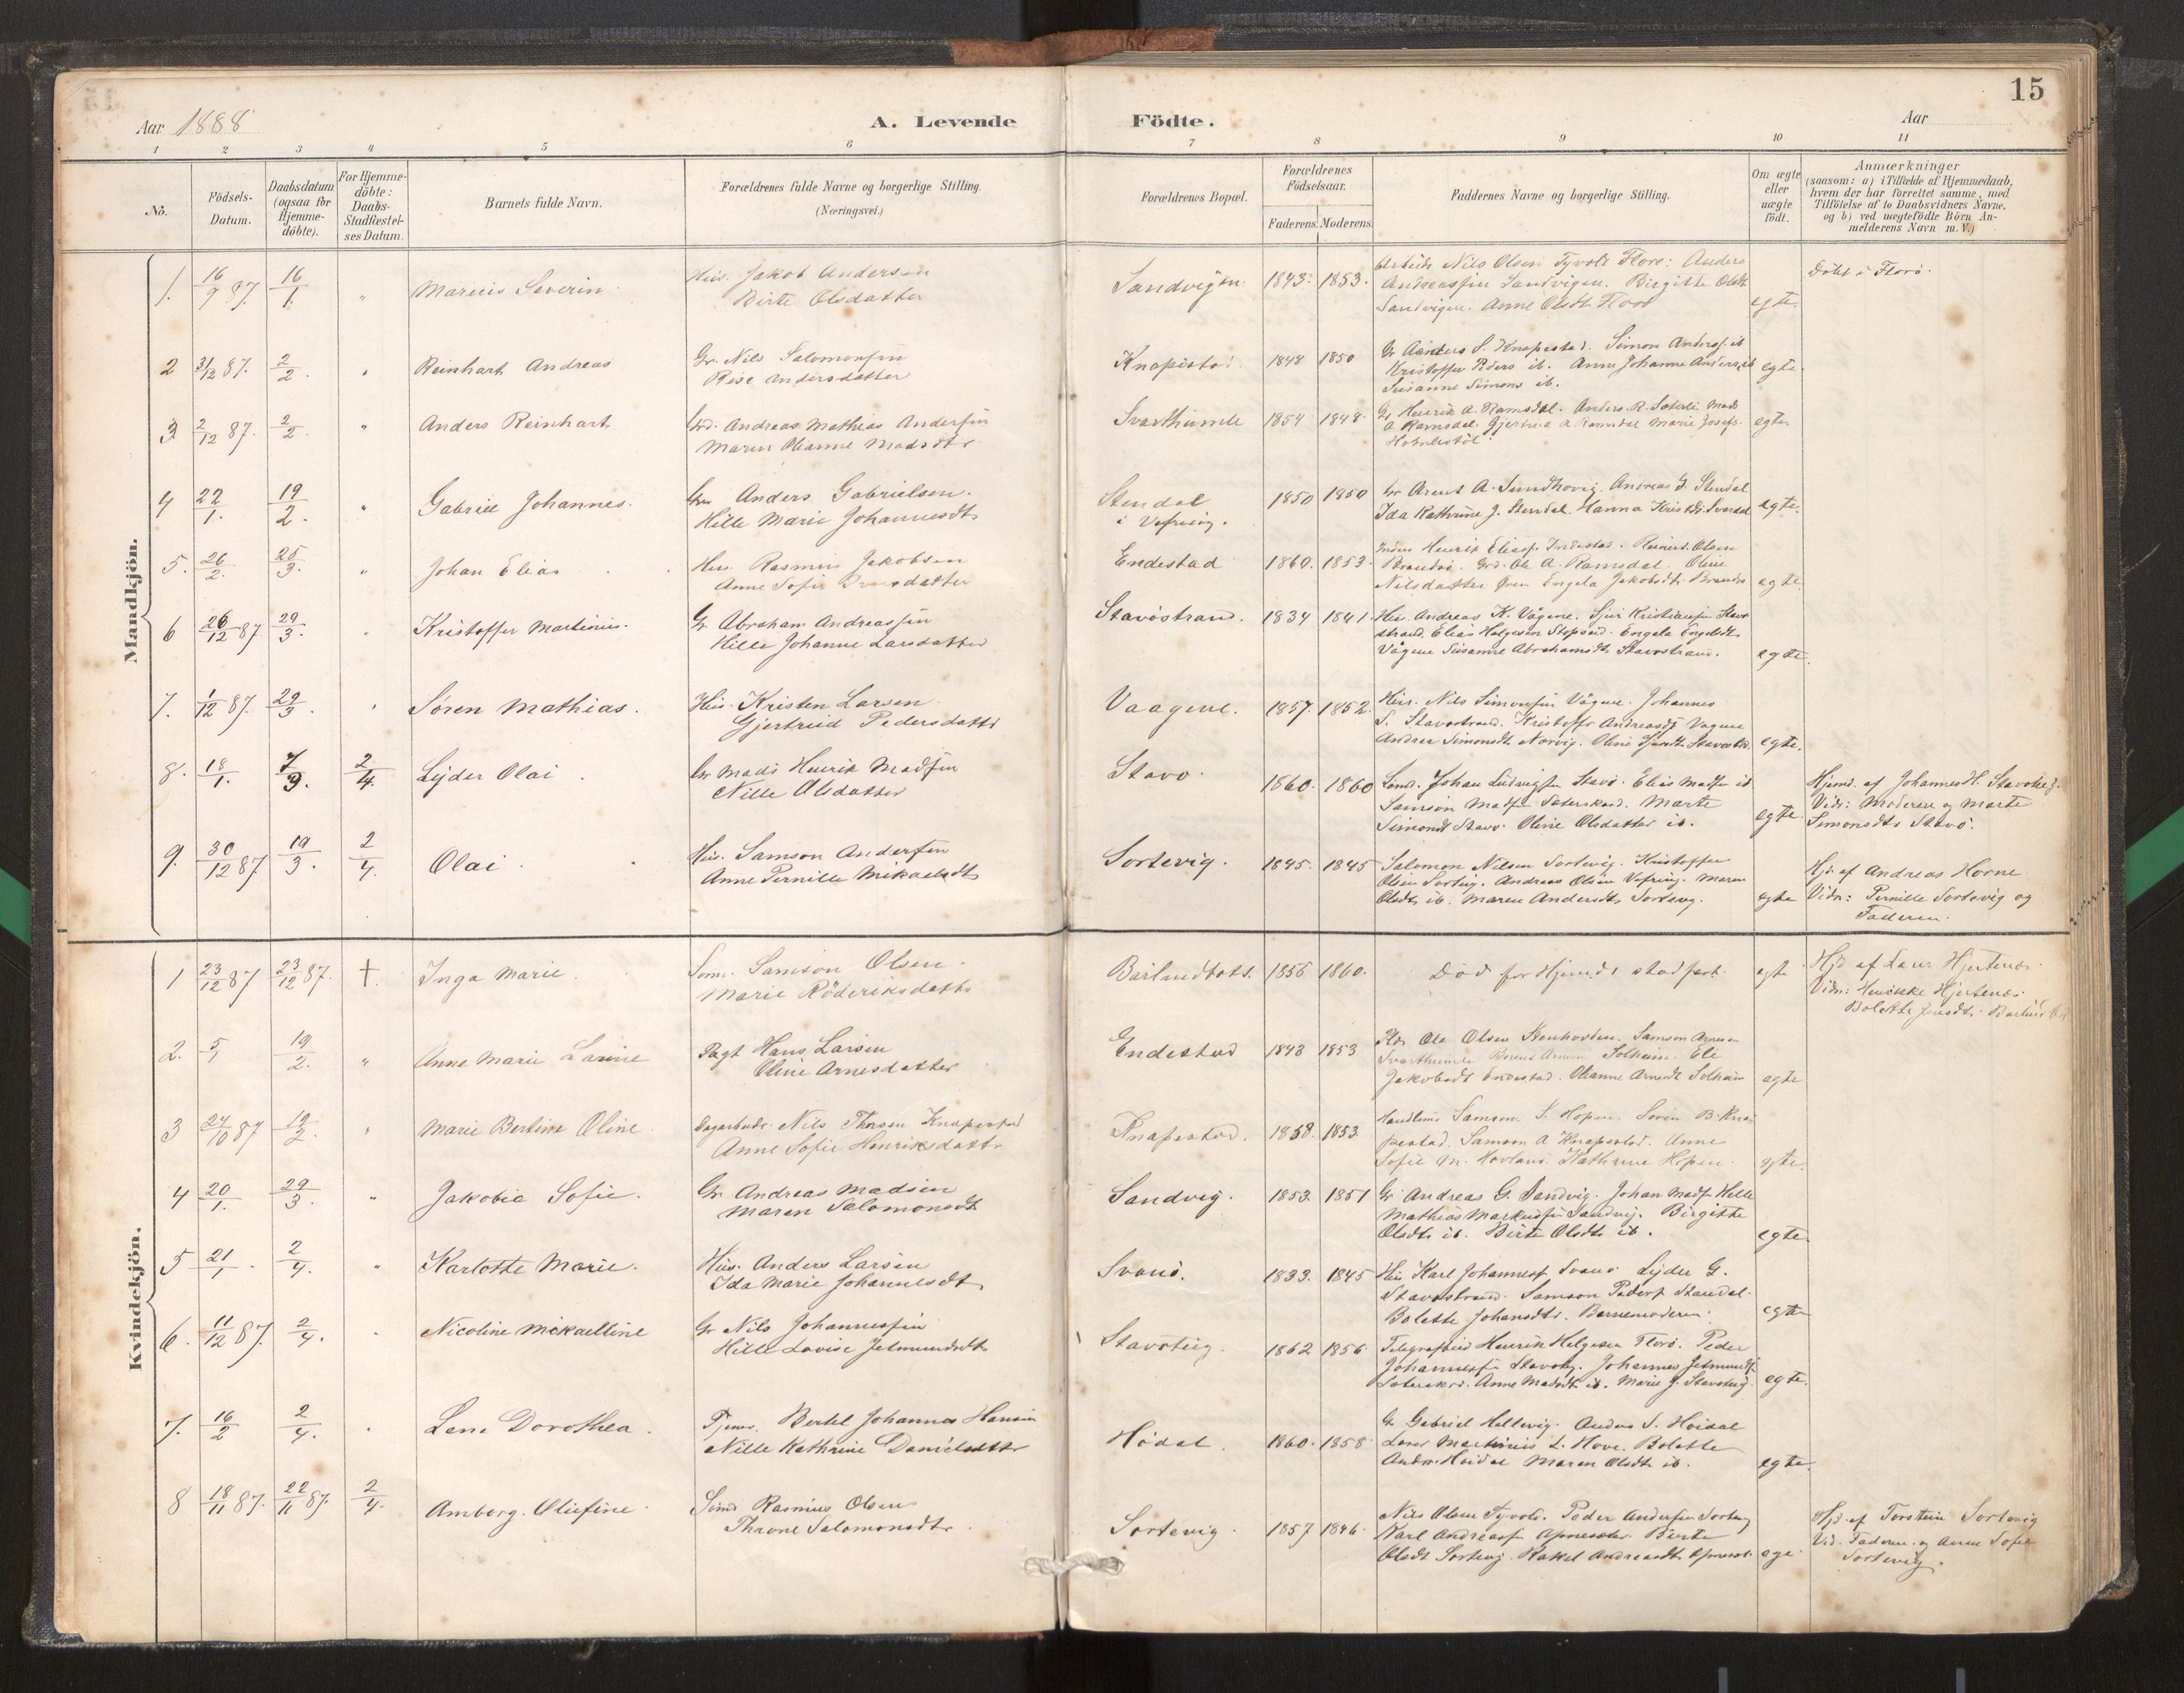 15
Aar 1888
A. Levende Födte.
Aar
1 2 3 4 5 6 7 8 9 10 11
No.
Födsels-Datum.
Daabsdatum (ogsaa for Hjemme-döbte).
For Hjemme-döbte: Daabs-Stadfæstel-ses Datum.
Barnets fulde Navn.
Forældrenes fulde Navne og borgerlige Stilling.
(Næringsvei.)
Forældrenes Bopæl.
Forældrenes Födselsaar.
Faderens. Moderens.
Faddernes Navne og borgerlige Stilling.
Om ægte eller uægte födt.
Anmærkninger
(saasom: a) i Tilfælde af Hjemmedaab,
hvem der har forrettet samme, med
Tilföielse af to Daabsvidners Navne,
og b) ved uægtefödte Börn An-
melderens Navn m. V.)
Mandkjön.
1. 16/9 87. 16/1. " Marius Severin. Hus. Jakob Andersen
Birte Olsdatter
Sandvigen. 1843. 1853. Arbeids Nils Olsen Tyvold Florø: Anders
Andreassen Sandvigen. Birgitte Olsdt
Sandvigen. Anne Olsdt Florø egte.
Döbt i Florö.
2 31/12 87. 2/2. " Reinhart Andreas Gr. Nils Salomonsen
Andersdatter
Knapestad 1848 1850 Gr Anders S. Knapestad. Simon Anders. ib
Kristoffer Peders ib. Anne Johanne Anders ib egte.
Susanne Simons ib.
3. 2/12 87. 2/2. " Anders Reinhart Grd. Andreas Mathias Andersen
Maren Oleanne Madsdtr
Svarthumle 1854 1848. Gr Henrik A. Ramsdal. Anders R. Mads
A Ramsdal. Gjertrud A Ramsdal Marie Josefs. egte.
4 22/1. 19/2. " Gabriel Johannes. Gr Anders Gabrielsen.
Hille Marie Johannesdtr
Stendal
i Vefring.
1850 1850 Gr Arent A. Sundhovig. Andreas J. Stendal
Ida Kathrine J. Stendal. Hanna Kristdtr Svardal egte.
5. 26/2. 25/3. " Johan Elias Hus. Rasmus Jakobsen
Anne Sofie
Endestad 1860. 1853. Henrik Eliass. Indestad. Reinert Olsen
Brandsø. Grd. Ole A. Ramsdal. Oline
Nilsdatter Engela Jakobsdtr Brandsø egte
6 26/12 87. 29/3. " Kristoffer Martinius. Gr Abraham Andreassen
Hille Johanne Larsdatter
Stavöstrand. 1834 1841. Hus. Andreas K. Vågene. Sjur Kristiansen Stavö
strand. Elias Helgesen Engela Engelsdtr
Vågene Susanne Abrahamsdtr Stavöstrand. egte.
7. 1/12 87. 29/3. " Søren Mathias. Hus. Kristen Larsen
Gjertrud Pedersdatter
Vaagene. 1857. 1852. Hus. Nils Simonsen Vågene. Johannes
S. Stavöstrand. Kristoffer Andreasdtr Vagene
Andrea Simonsdtr Norvig. Oline egte.
8. 18/1. 7/3. 2/4. Lyder Olai Gr Mads Henrik Madsen
Nille Olsdatter
Stavö. 1860. 1860 Johan Ludvigsen Stavö. Elias Madsen ib
Samson Madsen Sæterskard. Marte
Simonsdt Stavö. Oline Olsdatter ib. egte.
Hjemd. af Johannes H. Stavöteig.
Vidn: Moderen og Marte
Simonsdtr Stavö.
9. 30/12 87 19/3. 2/4. Olai Hus. Samson Andersen
Anne Pernille Mikaelsdtr
Sortevig. 1845. 1845 Salomon Nilsen Sortevig. Kristoffer
Olsen Sortevig. Andreas Olsen Vefring. Maren
Olsdtr ib. Maren Andersdtr Sortevig. egte
Hjd. af Andreas Horne
Vidn: Pernille Sortevig og
Faderen.
Kvindekjön.
1 23/12 87 23/12 87. † Inga Marie. Samson Olsen.
Marie Röderiksdatter
Barlundbots. 1856 1860. Död før Hjemds stadfæst. egte
Hjd af Lars Hjertenæs.
Vidn: Henrikke Hjertenæs.
Bolette
2. 5/1 19/2. " Anne Marie Larine Pagt Hans Larsen
Oline Arnesdatter
Endestad 1848 1853 Ole Olsen Samson Arnesen
Svarthumle Solheim. Eli
Jakobsdt Endestad. Oleanne Arnesdt Solheim egte
3 24/10 87 19/2. " Marie Bertine Oline. Dagarbeider. Nils Thorsen Knapestad
Anne Sofie Henriksdatter
Knapestad. 1858. 1853. Handlende Samson S. Hopen. Sören B. Kna-
pestad. Samson A Knapestad. Anne
Sofie M. Hovland. Kathrine Hopen. egte.
4 20/1. 29/3. " Jakobie Sofie. Gr. Andreas Madsen
Maren Salomonsdt
Sandvig. 1853. 1851 Gr Andreas G. Sandvig. Johan Mads. Helle
Mathias Markussen Sandvig. Birgitte
Olsdtr ib. Birte Olsdtr ib. egte
5 21/1. 2/4. " Karlotte Marie. Hus. Anders Larsen
Ida Marie Johannesdt
Svanö. 1833. 1845 Hus Karl Johanness. Svanö. Lyder G.
Stavöstrand. Samson Peders. Standal.
Bolette Johansdtr. Barnemoderen. egte
6. 11/12 87. 2/4. " Nicoline Mikaelline Gr Nils Johannessen
Hille Lovise Jetmundsdt
Stavöteig. 1862 1856 Telegrafbud Henrik Helgesen Florö. Peder
Johannessen Stavöteig. Johannes Jetmunds.
Anne Madsdtr ib. Marie J. Stavöteig. egte.
7. 16/2 2/4. " Lene Dorothea. Tjener. Bertel Johannes Hansen
Nille Kathrine Danielsdatter
Hödal. 1860. 1858. Gr Gabriel Hellevig. Anders S. Höidal
Lærer Martinius L. Hove. Bolette
Andr. Höidal Maren Olsdtr ib. egte.
8 18/11 87. 22/11 87. 2/4. Amborg Oliefine. Rasmus Olsen
Throne Salomonsdtr.
Sortevig. 1857 1846. Nils Olsen Tyvold. Peder Andersen Sortevig
Karl Andreassen Birte
Olsdt Sortevig. Rakel Andreasdtr
Hjd. af Torstein Sortevig
Vid. Faderen. og Anne Sofie
Sortevig.